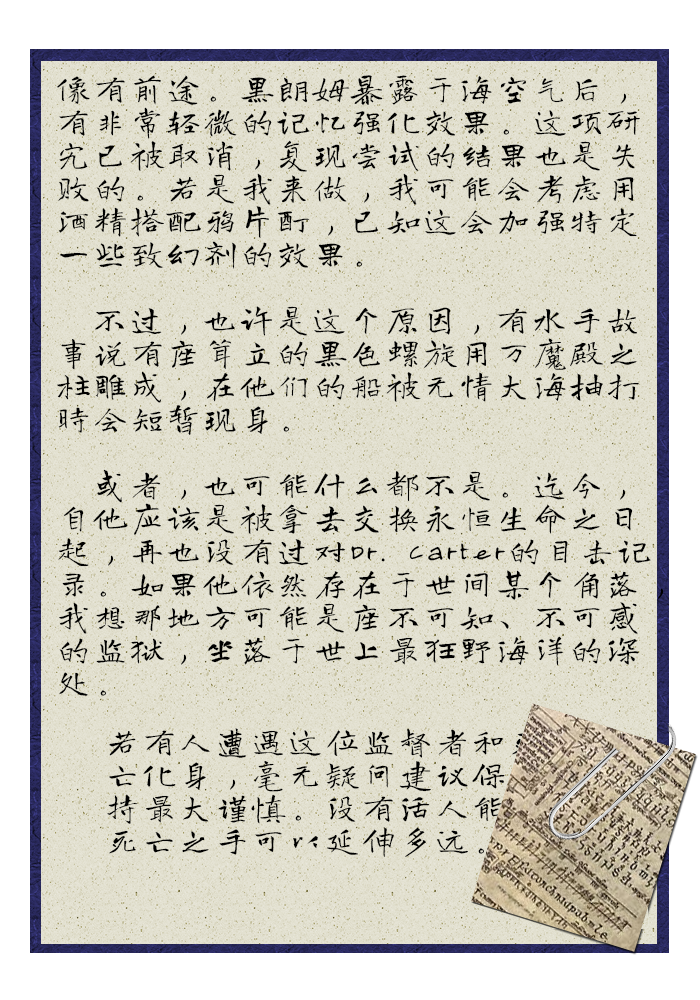 像有前途。黑朗姆暴露于海空气后，
有非常轻微的记忆强化效果。这项研
究已被取消，复现尝试的结果也是失
败的。若是我来做，我可能会考虑用
酒精搭配鸦片酊，已知这会加强特定
一些致幻剂的效果。
不过，也许是这个原因，有水手故
事说有座耸立的黑色螺旋用万魔殿之
柱雕成，在他们的船被无情大海抽打
時会短暂现身。
或者，也可能什么都不是。迄今，
自他应该是被拿去交换永恒生命之日
起，再也没有过对Dr. Carter的目击记
录。如果他依然存在于世间某个角落，
我想那地方可能是座不可知、不可感
的监狱，坐落于世上最狂野海洋的深
处。
若有人遭遇这位监督者和
亡化身，毫无疑问建议保
持最大谨慎。没有活人能
死亡之手可以延伸多远。